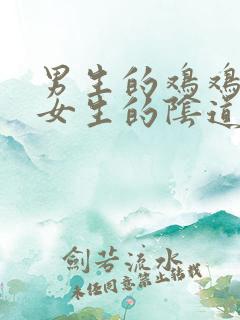 男生的鸡鸡
女生的陰道
劍若流水
未经同意禁止转载